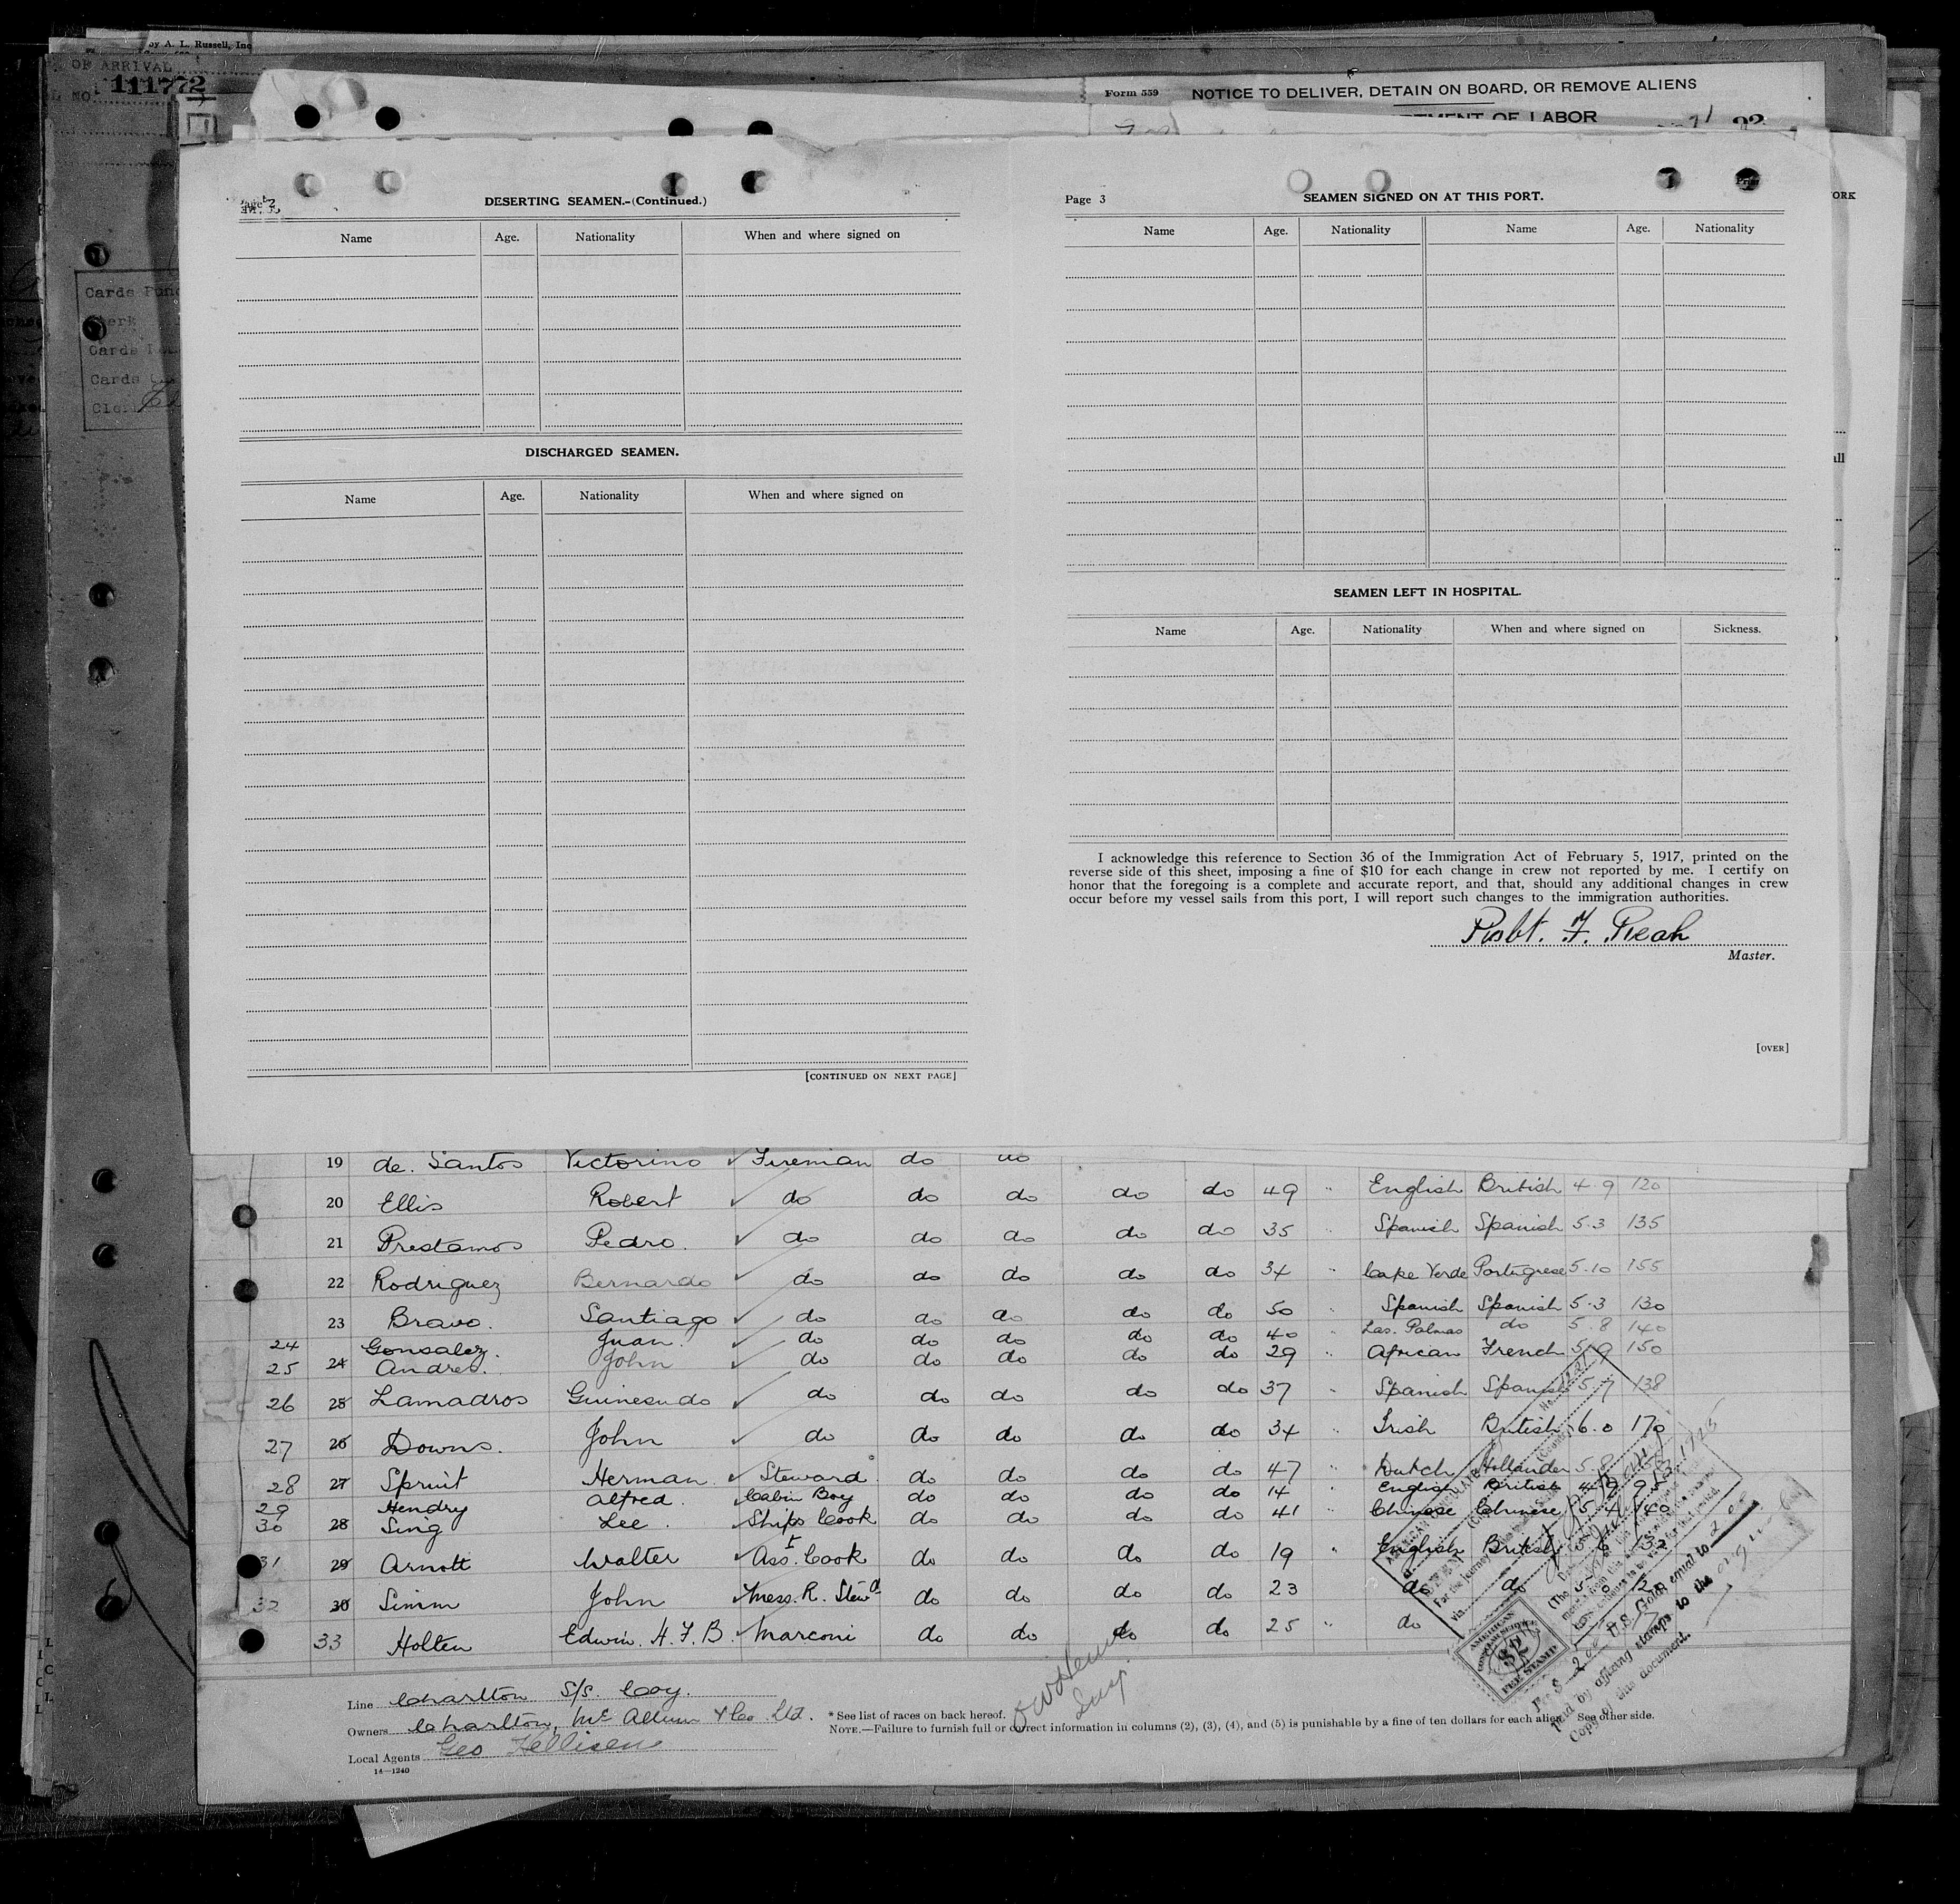 by A. L. Russell, Inc
OF ARRIVAL
NO. 111772
Form 559 NOTICE TO DELIVER, DETAIN ON BOARD, OR REMOVE ALIENS
OF LABOR
Cards
Cards
Cards
DESERTING SEAMEN.-(Continued.)
Name Age. Nationality When and where signed on
DISCHARGED SEAMEN.
Name Age. Nationality When and where signed on
[CONTINUED ON NEXT PAGE]
Page 3 SEAMEN SIGNED ON AT THIS PORT.
Name Age. Nationality Name Age. Nationality
SEAMEN LEFT IN HOSPITAL.
Name Age. Nationality When and where signed on Sickness.
I acknowledge this reference to Section 36 of the Immigration Act of February 5, 1917, printed on the
reverse side of this sheet, imposing a fine of $10 for each change in crew not reported by me. I certify on
honor that the foregoing is a complete and accurate report, and that, should any additional changes in crew
occur before my vessel sails from this port, I will report such changes to the immigration authorities.
Robt. F. Reah
Master.
[OVER]
19 de. Santos Victorino Fireman do do
20 Ellis Robert do do do do do 49 " English British 4.9 120
21 Prestamos Pedro. do do do do do 35 " Spanish Spanish 5.3 135
22 Rodriguez Bernardo do do do do do 34 " Cape Verde Portugese 5.10 155
23 Bravo. Santiago do do do do do 50 " Spanish Spanish 5.3 130
24 Gonsalez. Juan. do do do do do 40 " Las. Palmas do 5.8 140
25 24 Andres. John do do do do do 29 " African French 5.9 150
26 25 Lamadros do do do do do 37 " Spanish Spanish 5.7 138
27 26 Downs. John do do do do do 34 " Irish British 6.0 170
28 27 Spruit Herman. Steward do do do do 47 " Dutch Hollander 5.8
29 Hendry Alfred. Cabin Boy do do do do 14 " English British
30 28 Sing Lee. Ships Cook do do do do 41 " Chinese Chinese 5.4 140
31 29 Arnott Walter Ass. Cook do do do do 19 " English British
32 30 Simm John Mess. R. Stewd do do do do 23 do do
33 Holten Edwin. H. F. B. Marconi do do do do 25 " do
AMERICAN
CONSULAR SERVICE
$2
FEE STAMP
U.S. Gold, equal to
paid by affixing stamps to the
Copy of this document.
Line Charlton S/S. Coy.
Owners Charlton, Mc Allum & Co Ltd.
Local Agents Geo
14—1240
* See list of races on back hereof.
NOTE.—Failure to furnish full or correct information in columns (2), (3), (4), and (5) is punishable by a fine of ten dollars for each alien. See other side.